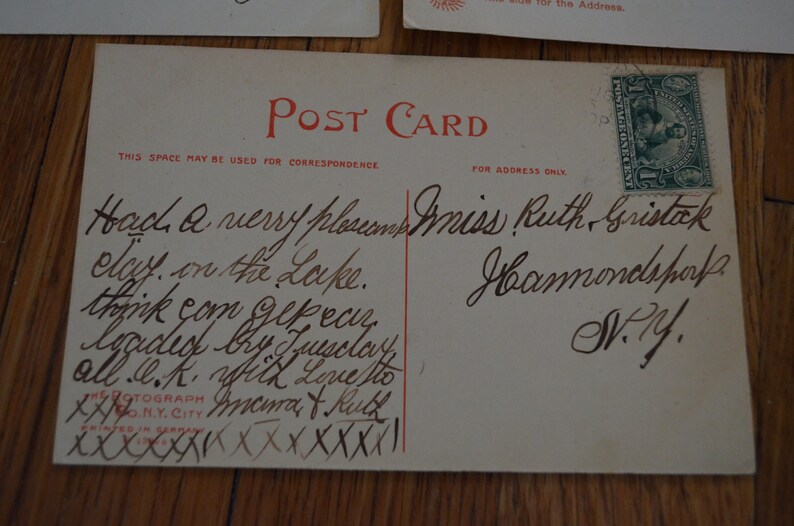 side for the Address.
POST CARD
THIS SPACE MAY BE USED FOR CORRESPONDENCE
FOR ADDRESS ONLY.
Had a verry pleasant
day on the Lake.
think can get car
loaded by Tuesday,
all O.K. with Love to
Mama & Ruth
XXXXXXX XXXXXXXX
THE ROTOGRAPH
CO. N.Y. CITY
PRINTED IN GERMANY
Miss Ruth Gristock
Hammondsport
N.Y.
1 POSTAGE ONE CENT 1